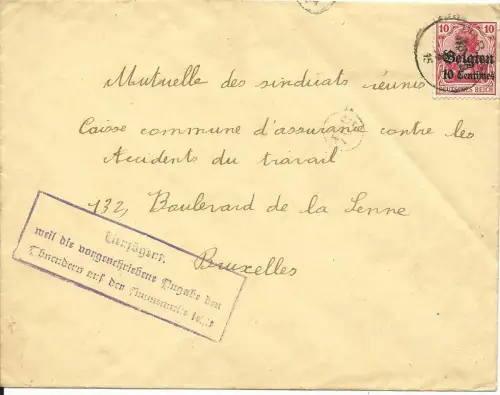 10 10
Belgien
10 Centimes
DEUTSCHES REICH
Mutuelle des sindicats réunis
Caisse commune d'assurance contre les
Accidents du travail
132, Boulevard de la Senne
Bruxelles
Verzögert,
weil die vorgeschriebene Angabe des
Absenders auf der